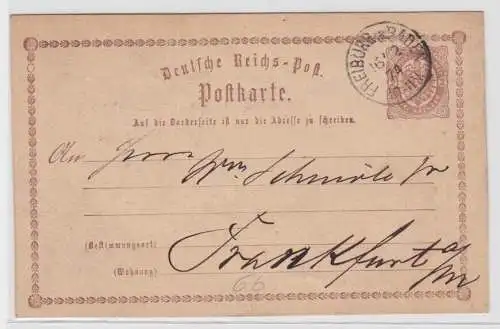 FREIBURG in BADEN
Deutsche Reichs-Post.
Postkarte.
Auf die Vorderseite ist nur die Adresse zu schreiben.
An Herrn Wm Schmöle jr
(Bestimmungsort)
Frankfurt a/m
(Wohnung)
66